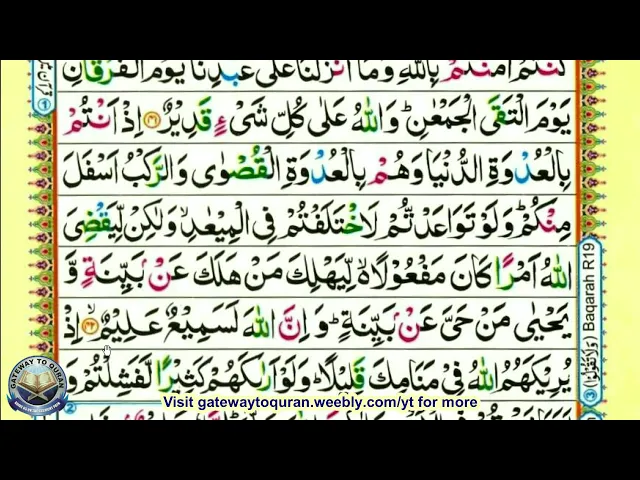 كُنْتُمْ اٰمَنْتُمْ بِاللّٰهِ وَمَاۤ اَنْزَلْنَا عَلٰى عَبْدِنَا يَوْمَ الْفُرْقَانِ
يَوْمَ الْتَقَى الْجَمْعٰنِ ؕ وَاللّٰهُ عَلٰى كُلِّ شَىْءٍ قَدِيْرٌ ﴿۴۱﴾ اِذْ اَنْتُمْ
بِالْعُدْوَةِ الدُّنْيَا وَهُمْ بِالْعُدْوَةِ الْقُصْوٰى وَالرَّكْبُ اَسْفَلَ
مِنْكُمْ ؕ وَلَوْ تَوَاعَدْتُّمْ لَاخْتَلَفْتُمْ فِى الْمِيْعٰدِ ۙ وَلٰكِنْ لِّيَقْضِىَ
اللّٰهُ اَمْرًا كَانَ مَفْعُوْلًا ۙ لِّيَهْلِكَ مَنْ هَلَكَ عَنْۢ بَيِّنَةٍ وَّ
يَحْيٰى مَنْ حَىَّ عَنْۢ بَيِّنَةٍ ؕ وَاِنَّ اللّٰهَ لَسَمِيْعٌ عَلِيْمٌ ۙ ﴿۴۲﴾ اِذْ
يُرِيْكَهُمُ اللّٰهُ فِىْ مَنَامِكَ قَلِيْلًا ؕ وَلَوْ اَرٰٮكَهُمْ كَثِيْرًا لَّفَشِلْتُمْ وَ
Baqarah R19
GATEWAY TO QURAN
Visit gatewaytoquran.weebly.com/yt for more